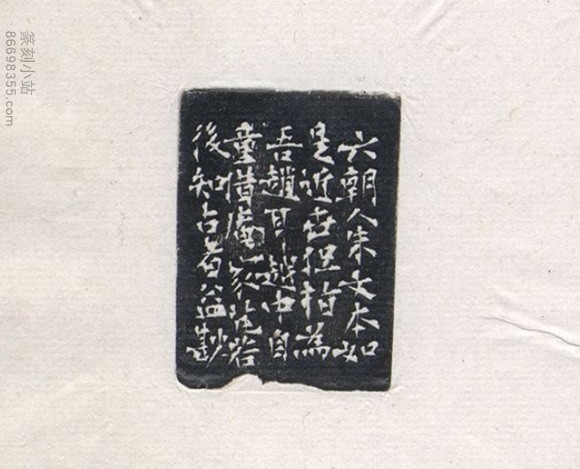 六朝人朱文本如
是近世但指為
吾趙耳越中自
童借庵家若
後知古者益尠
篆刻小站
86698355.com